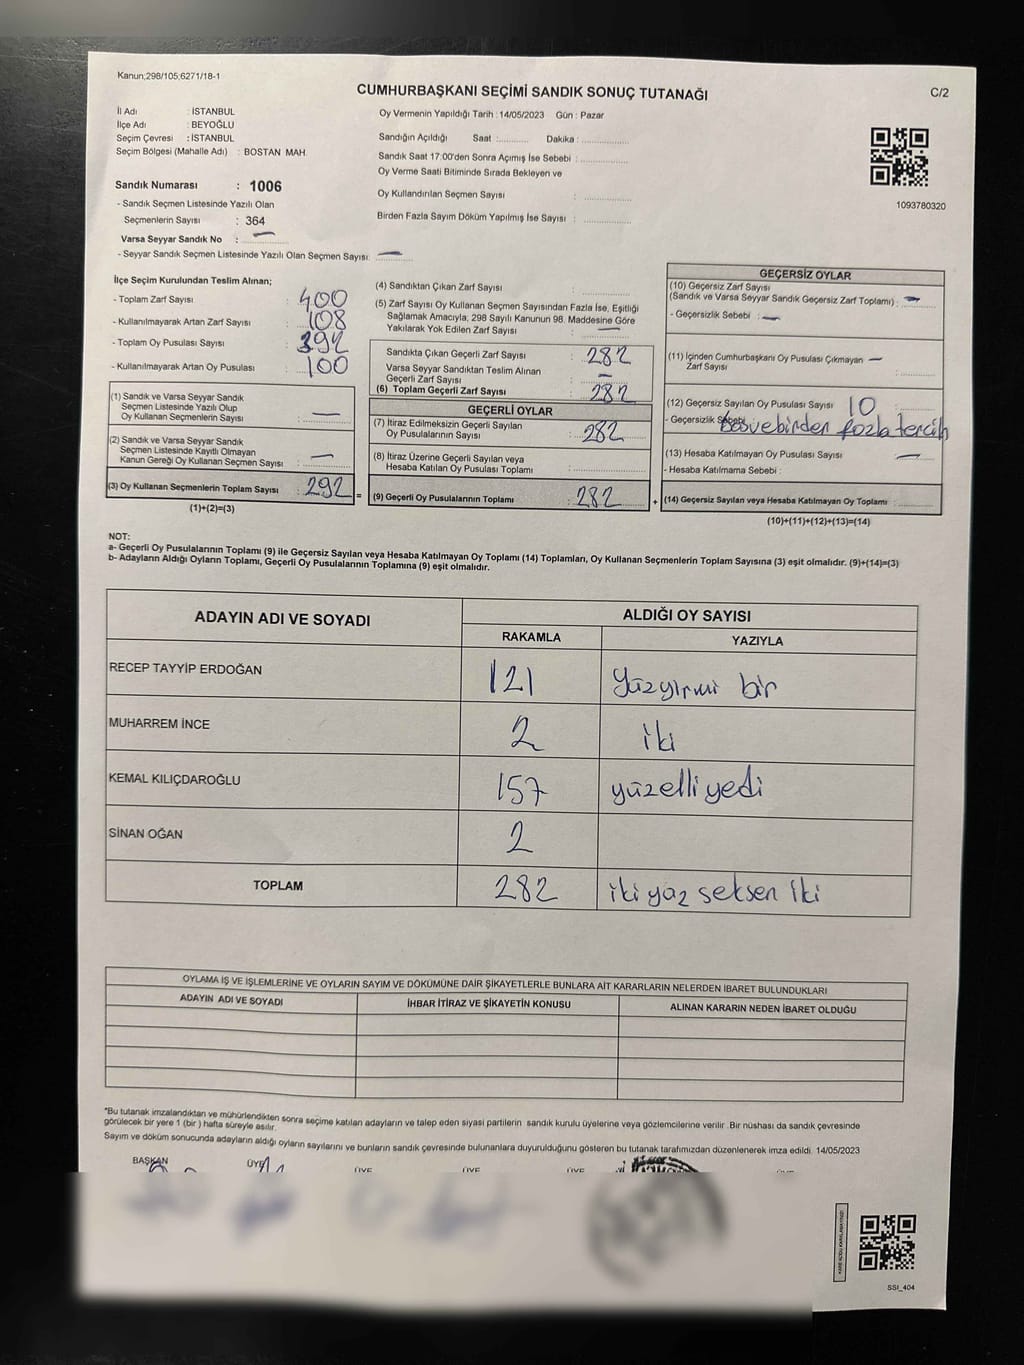 Kanun;298/105;6271/18-1
CUMHURBAŞKANI SEÇİMİ SANDIK SONUÇ TUTANAĞI
C/2
İl Adı : İSTANBUL
İlçe Adı : BEYOĞLU
Seçim Çevresi : İSTANBUL
Seçim Bölgesi (Mahalle Adı) : BOSTAN MAH.
Sandık Numarası : 1006
- Sandık Seçmen Listesinde Yazılı Olan
Seçmenlerin Sayısı : 364
Varsa Seyyar Sandık No : —
- Seyyar Sandık Seçmen Listesinde Yazılı Olan Seçmen Sayısı: —
Oy Vermenin Yapıldığı Tarih : 14/05/2023 Gün : Pazar
Sandığın Açıldığı Saat :............ Dakika : ....................
Sandık Saat 17:00'den Sonra Açımış İse Sebebi : ....................
Oy Verme Saati Bitiminde Sırada Bekleyen ve
Oy Kullandırılan Seçmen Sayısı : ....................
Birden Fazla Sayım Döküm Yapılmış İse Sayısı : ....................
1093780320
İlçe Seçim Kurulundan Teslim Alınan;
- Toplam Zarf Sayısı : 400
- Kullanılmayarak Artan Zarf Sayısı : 108
- Toplam Oy Pusulası Sayısı : 392
- Kullanılmayarak Artan Oy Pusulası : 100
(1) Sandık ve Varsa Seyyar Sandık
Seçmen Listesinde Yazılı Olup
Oy Kullanan Seçmenlerin Sayısı : —
(2) Sandık ve Varsa Seyyar Sandık
Seçmen Listesinde Kayıtlı Olmayan
Kanun Gereği Oy Kullanan Seçmen Sayısı : —
(3) Oy Kullanan Seçmenlerin Toplam Sayısı : 292 =
(1)+(2)=(3)
(4) Sandıktan Çıkan Zarf Sayısı : ....................
(5) Zarf Sayısı Oy Kullanan Seçmen Sayısından Fazla İse, Eşitliği
Sağlamak Amacıyla, 298 Sayılı Kanunun 98. Maddesine Göre
Yakılarak Yok Edilen Zarf Sayısı : —
Sandıkta Çıkan Geçerli Zarf Sayısı : 282
Varsa Seyyar Sandıktan Teslim Alınan
Geçerli Zarf Sayısı : —
(6) Toplam Geçerli Zarf Sayısı : 282
GEÇERLİ OYLAR
(7) İtiraz Edilmeksizin Geçerli Sayılan
Oy Pusulalarının Sayısı : 282
(8) İtiraz Üzerine Geçerli Sayılan veya
Hesaba Katılan Oy Pusulası Toplamı : ....................
(9) Geçerli Oy Pusulalarının Toplamı : 282 +
GEÇERSİZ OYLAR
(10) Geçersiz Zarf Sayısı
(Sandık ve Varsa Seyyar Sandık Geçersiz Zarf Toplamı) : —
- Geçersizlik Sebebi : —
(11) İçinden Cumhurbaşkanı Oy Pusulası Çıkmayan —
Zarf Sayısı : ............
(12) Geçersiz Sayılan Oy Pusulası Sayısı 10
- Geçersizlik Sebebi boş ve birden fazla tercih
(13) Hesaba Katılmayan Oy Pusulası Sayısı : —
- Hesaba Katılmama Sebebi :
(14) Geçersiz Sayılan veya Hesaba Katılmayan Oy Toplamı : ............
(10)+(11)+(12)+(13)=(14)
NOT:
a- Geçerli Oy Pusulalarının Toplamı (9) ile Geçersiz Sayılan veya Hesaba Katılmayan Oy Toplamı (14) Toplamları, Oy Kullanan Seçmenlerin Toplam Sayısına (3) eşit olmalıdır. (9)+(14)=(3)
b- Adayların Aldığı Oyların Toplamı, Geçerli Oy Pusulalarının Toplamına (9) eşit olmalıdır.
ADAYIN ADI VE SOYADI
ALDIĞI OY SAYISI
RAKAMLA YAZIYLA
RECEP TAYYİP ERDOĞAN 121 yüzyirmi bir
MUHARREM İNCE 2 iki
KEMAL KILIÇDAROĞLU 157 yüzelli yedi
SİNAN OĞAN 2
TOPLAM 282 iki yüz seksen iki
OYLAMA İŞ VE İŞLEMLERİNE VE OYLARIN SAYIM VE DÖKÜMÜNE DAİR ŞİKAYETLERLE BUNLARA AİT KARARLARIN NELERDEN İBARET BULUNDUKLARI
ADAYIN ADI VE SOYADI İHBAR İTİRAZ VE ŞİKAYETİN KONUSU ALINAN KARARIN NEDEN İBARET OLDUĞU
*Bu tutanak imzalandıktan ve mühürlendikten sonra seçime katılan adayların ve talep eden siyasi partilerin sandık kurulu üyelerine veya gözlemcilerine verilir. Bir nüshası da sandık çevresinde
görülecek bir yere 1 (bir ) hafta süreyle asılır.
Sayım ve döküm sonucunda adayların aldığı oyların sayılarını ve bunların sandık çevresinde bulunanlara duyurulduğunu gösteren bu tutanak tarafımızdan düzenlenerek imza edildi. 14/05/2023
BAŞKAN ÜYE ÜYE ÜYE ÜYE ÜYE
SSI_404